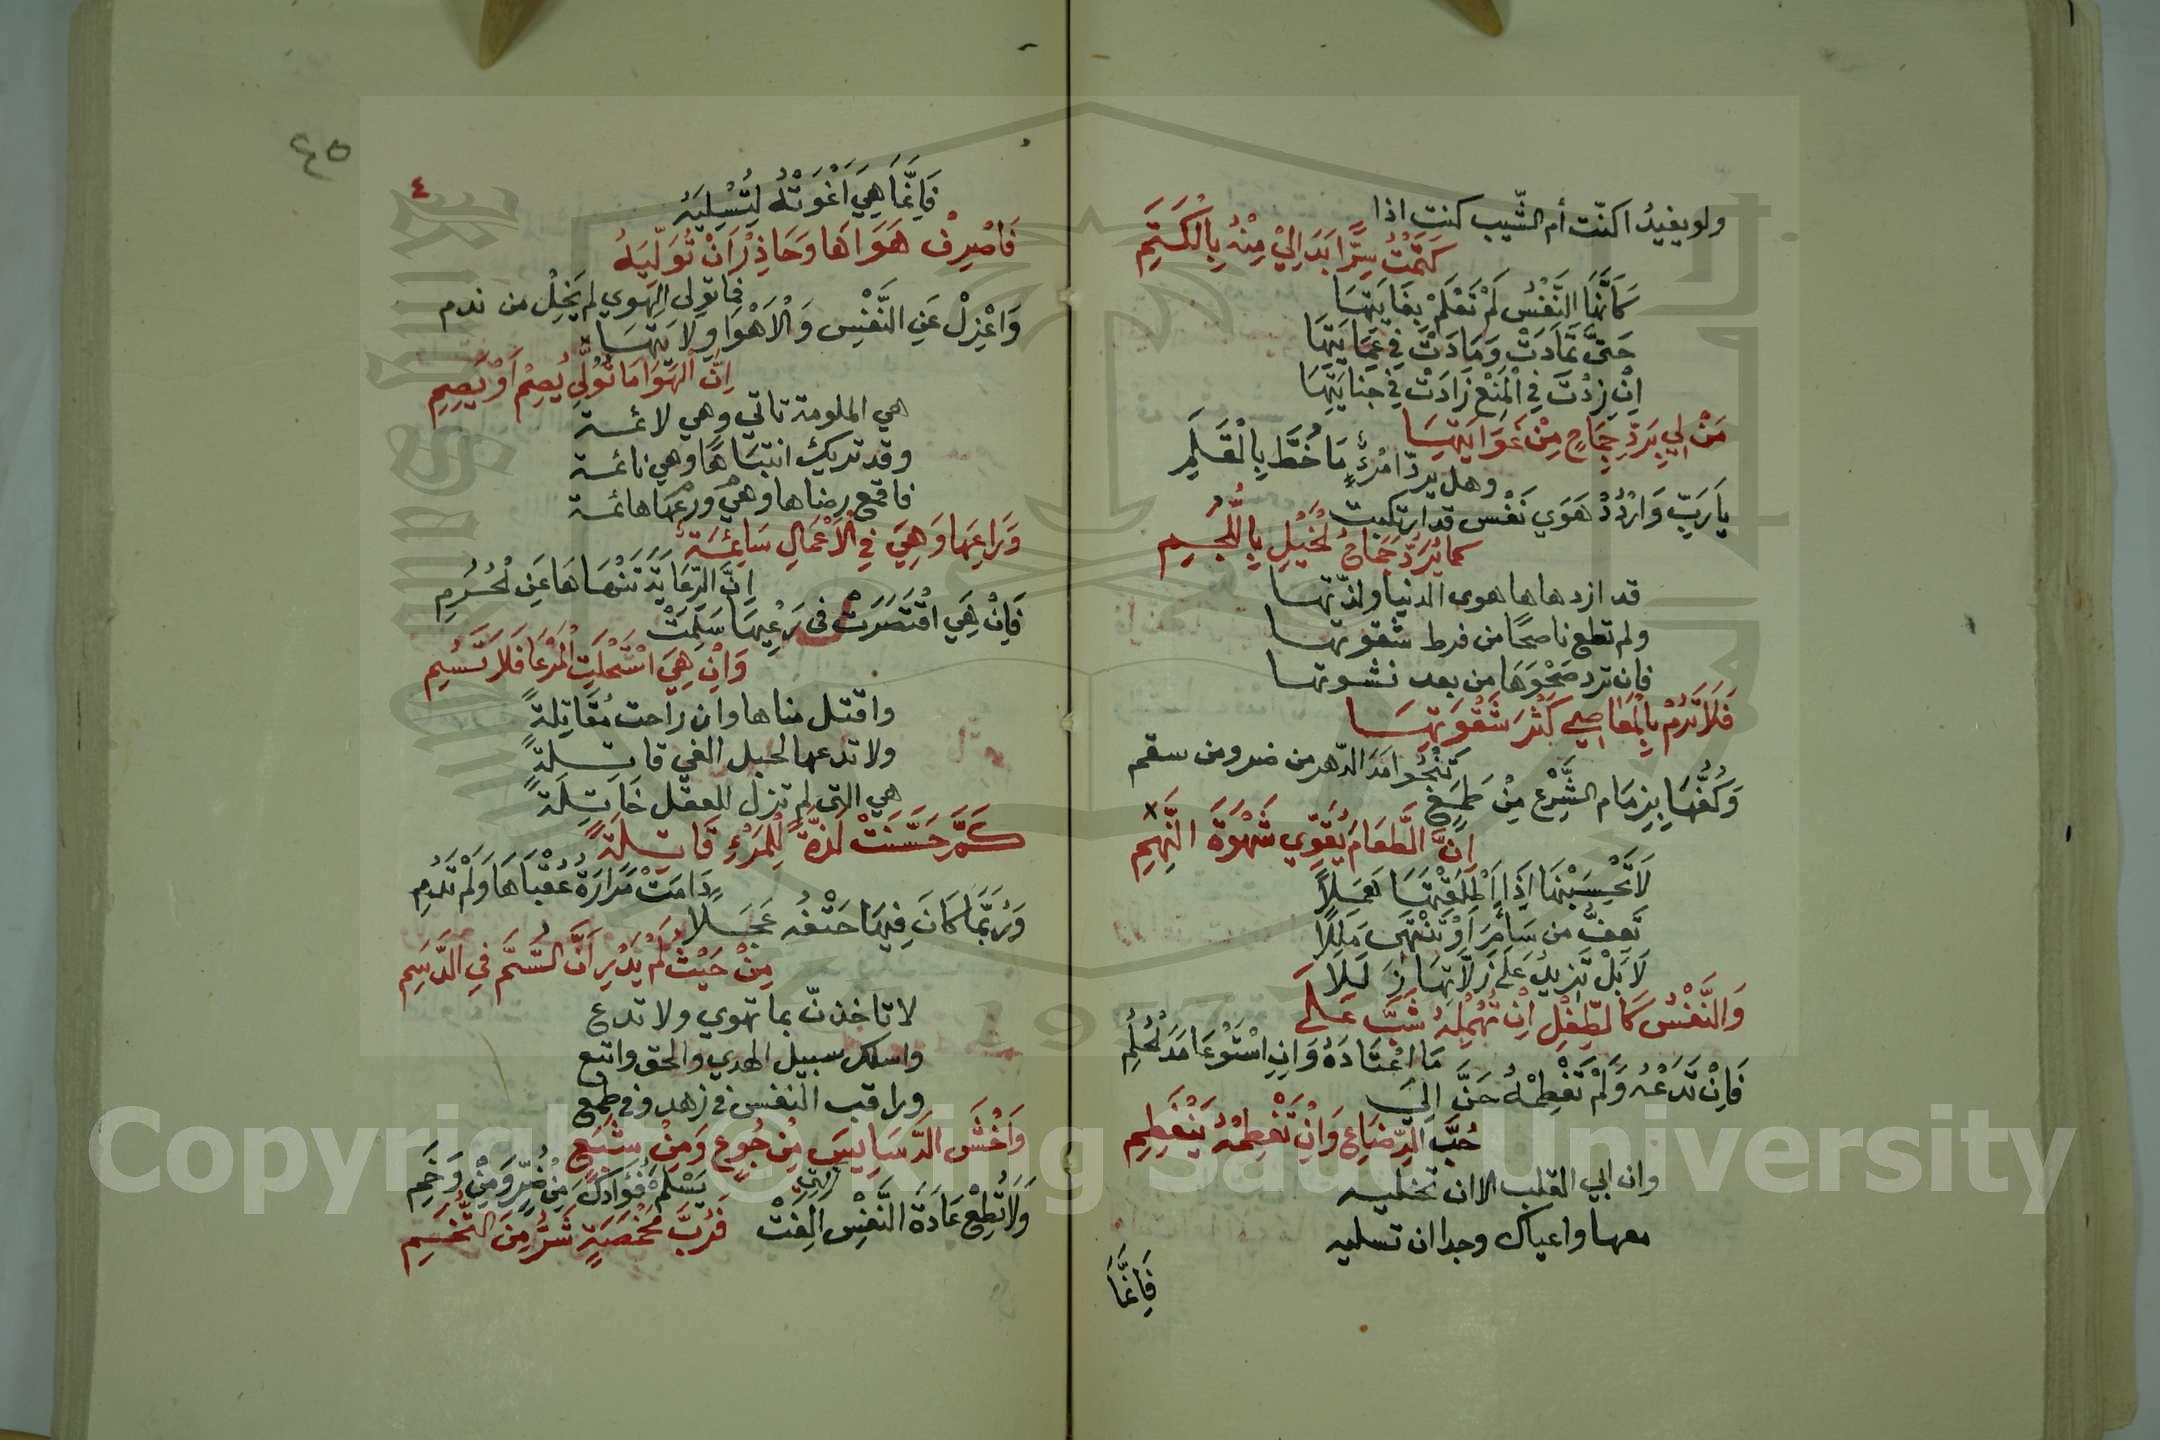 ولو يفيدُ اكنّت أم الشّيب كنت اذا
كَتَمْتُ سِرًّا بَدَا لِيْ مِنْهُ بِالْكَتَمِ
كَأَنَّهَا النَّفْسُ لَمْ تَعْلَمْ بِغَايَتِهَا
حَتَّى تَمَادَتْ وَمَادَتْ فِي عَمَايَتِهَا
اِنْ زِدْتَ فِي الْمَنْعِ زَادَتْ فِي جِنايَتِهَا
مَنْ لِي بِرَدِّ جِمَاحٍ مِنْ غَوَايَتِهَا
وهل يردّ امْرُءٌ مَا خُطَّ بِالْقَلَمِ
يَا رَبِّ وَارْدُدْ هَوَي نَفْس قد ارتكبت
كما يُرَدُّ جِمَاحُ لْخَيْلِ بِاللُّجُمِ
قد ازدهاها هوى الدنيا ولذّتها
ولم تطع ناصحًا من فرط شقوتها
فان ترد صَحْوَهَا من بعد نشوتها
فَلَا تَرُمْ بِالْمَعَاصِي كَسْرَ شَهْوَتِهَا
تَنْجُوا مَدَ الدّهر من ضر ومن سقم
وَكُفَّهَا بِزِمَام الشَّرْعِ مِنْ طَمَعٍ
اِنَّ الطَّعَامَ يُقَوِّي شَهْوَةَ النَّهِمِ
لَا تَحْسِبْنَهَا اِذَا اَطْلَقْتَهَا هَمَلًا
تَعِفُّ من سَأمٍ اَوْ تَنْتَهِي مَلَلًا
لَا بَلْ تَزِيدُ عَلَى زَلَّاتِهَا زَلَلَا
وَالنَّفْسُ كَالطِّفْلِ اِنْ تُهْمِلْهُ شَبَّ عَلَى
مَا اعْتَادَهُ وَاِنِ اسْتَوْعَا مَدَ لْحُلُمِ
فَاِنْ تَدَعْهُ وَلَمْ تَفْطِمْهُ حَنَّ اِلَى
حُبِّ الرِّضَاعِ وَاِنْ تَفْطِمْهُ يَنْفَطِمِ
وان ابي القلب الا ان تخليه
معها واعياك وجدا ان تسليه
فَاِنَّمَا
٤٥
٤
فَاِنَّمَا هِيَ اَغْوَتْهُ لِتُسْلِيَهُ
فَاصْرِفْ هَوَاهَا وَحَاذِرْ اَنْ تُوَلِّيَهُ
فما تولى الهوي لم يَخِلْ من ندم
وَاعْزِلْ عَنِ النَّفْسِ وَالْاَهْوَا وِلَايَتَهَا
اِنَّ الْهَوَا مَا تُوُلِّي يُصِمْ اَوْ يَصِمِ
هي الملومة تاتي وهي لائمة
وقد تريك انتبَاهًا وهي نائمة
فاقمع رضاها وهي ورعها هائمة
وَرَاعِهَا وَهِيَ فِي الْاَعْمَالِ سَائِمَةٌ
اِنَّ الرِّعَايَةَ تَنْهَاهَا عَنِ لْحُرُمِ
فَاِنْ هِيَ اقْتَصَرَتْ فى رَعْيِهَا سَلِمَتْ
وَاِنْ هِيَ اسْتَحْلَتِ الْمَرْعَا فَلَا تَسُمِ
واقتل مناها وان راحت مُقَاتِلةً
ولا تدعها لحبل الغي قاتِلةً
هي التى لم تزل للعقل خَاتِلَةً
كَمْ حَسَّنَتْ لَذَّةً لِلْمَرْءِ قَاتِلَةً
دَامَتْ مَرَارَةُ عُقْبَاهَا وَلَمْ تَدُمِ
وَرُبَّمَا كَانَ فِيهَا حَتْفُه عَجَلًا
مِنْ حَيْثُ لَمْ يَدْرِ اَنَّ السُّمَّ فِي الدَّسَمِ
لا تاخذنّ بما تهوي ولا تدع
واسلك سبيل الهدي والحق واتبع
وراقب النفس في زهد وفي طمع
وَاخْشَ الدَّسَايِسَ مِنْ جُوعٍ وَمِنْ شَبَعٍ
يَسْلَمْ فُؤَادُكَ مِنْ ضُرٍّ وَمِنْ وَخَمِ
وَلَا تُطِعْ عَادَةَ النَّفْسِ التي اَلِفَتْ
فَرُبَّ مَخْمَصَةٍ شَرٌّ مِنَ التُّخَمِ
Copyright © King Saud University
1957